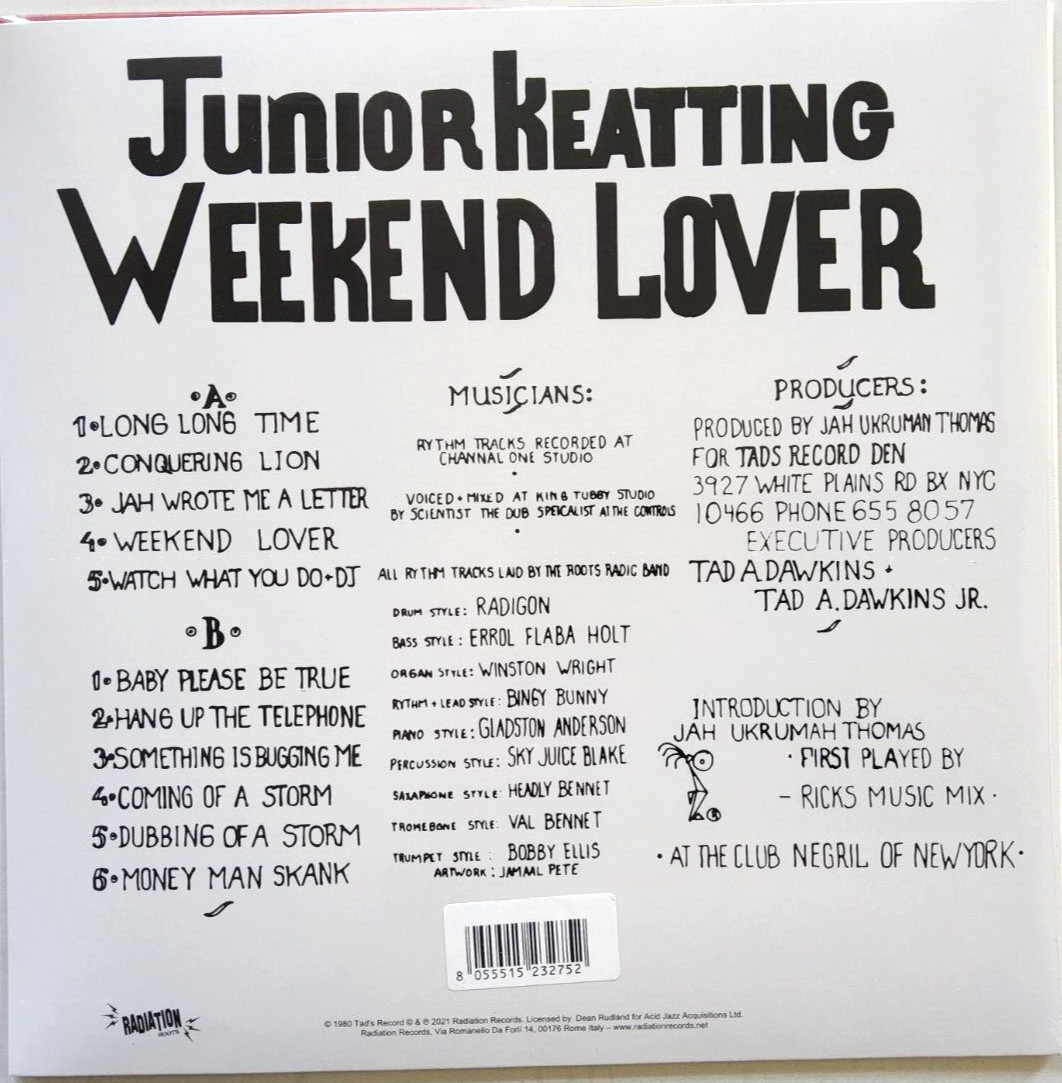 JUNIOR KEATTING
WEEKEND LOVER
A
1•LONG LONG TIME
2•CONQUERING LION
3• JAH WROTE ME A LETTER
4• WEEKEND LOVER
5•WATCH WHAT YOU DO+DJ
B
1•BABY PLEASE BE TRUE
2•HANG UP THE TELEPHONE
3•SOMETHING IS BUGGING ME
4•COMING OF A STORM
5•DUBBING OF A STORM
6•MONEY MAN SKANK
MUSICIANS:
RYTHM TRACKS RECORDED AT
CHANNAL ONE STUDIO
VOICED + MIXED AT KING TUBBY STUDIO
BY SCIENTIST THE DUB SPEICALIST AT THE CONTROLS
ALL RYTHM TRACKS LAID BY THE ROOTS RADIC BAND
DRUM STYLE: RADIGON
BASS STYLE: ERROL FLABA HOLT
ORGAN STYLE: WINSTON WRIGHT
RYTHM + LEAD STYLE: BINGY BUNNY
PIANO STYLE: GLADSTON ANDERSON
PERCUSSION STYLE: SKY JUICE BLAKE
SAXAPHONE STYLE: HEADLY BENNET
TROMEBONE STYLE: VAL BENNET
TRUMPET STYLE: BOBBY ELLIS
ARTWORK: JAMAAL PETE
PRODUCERS:
PRODUCED BY JAH UKRUMAN THOMAS
FOR TADS RECORD DEN
3927 WHITE PLAINS RD BX NYC
10466 PHONE 655 8057
EXECUTIVE PRODUCERS
TAD A DAWKINS +
TAD A. DAWKINS JR.
INTRODUCTION BY
JAH UKRUMAH THOMAS
• FIRST PLAYED BY
– RICKS MUSIC MIX •
• AT THE CLUB NEGRIL OF NEW YORK •
8 055515 232752
RADIATION
ROOTS
© 1980 Tad's Record © & ℗ 2021 Radiation Records. Licensed by Dean Rudland for Acid Jazz Acquisitions Ltd.
Radiation Records, Via Romanello Da Forlì 14, 00176 Rome Italy – www.radiationrecords.net